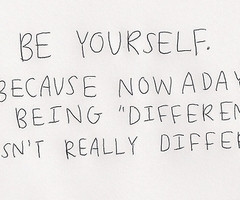 BE YOURSELF.
BECAUSE NOWADAY
BEING "DIFFEREN
SN'T REALLY DIFFER